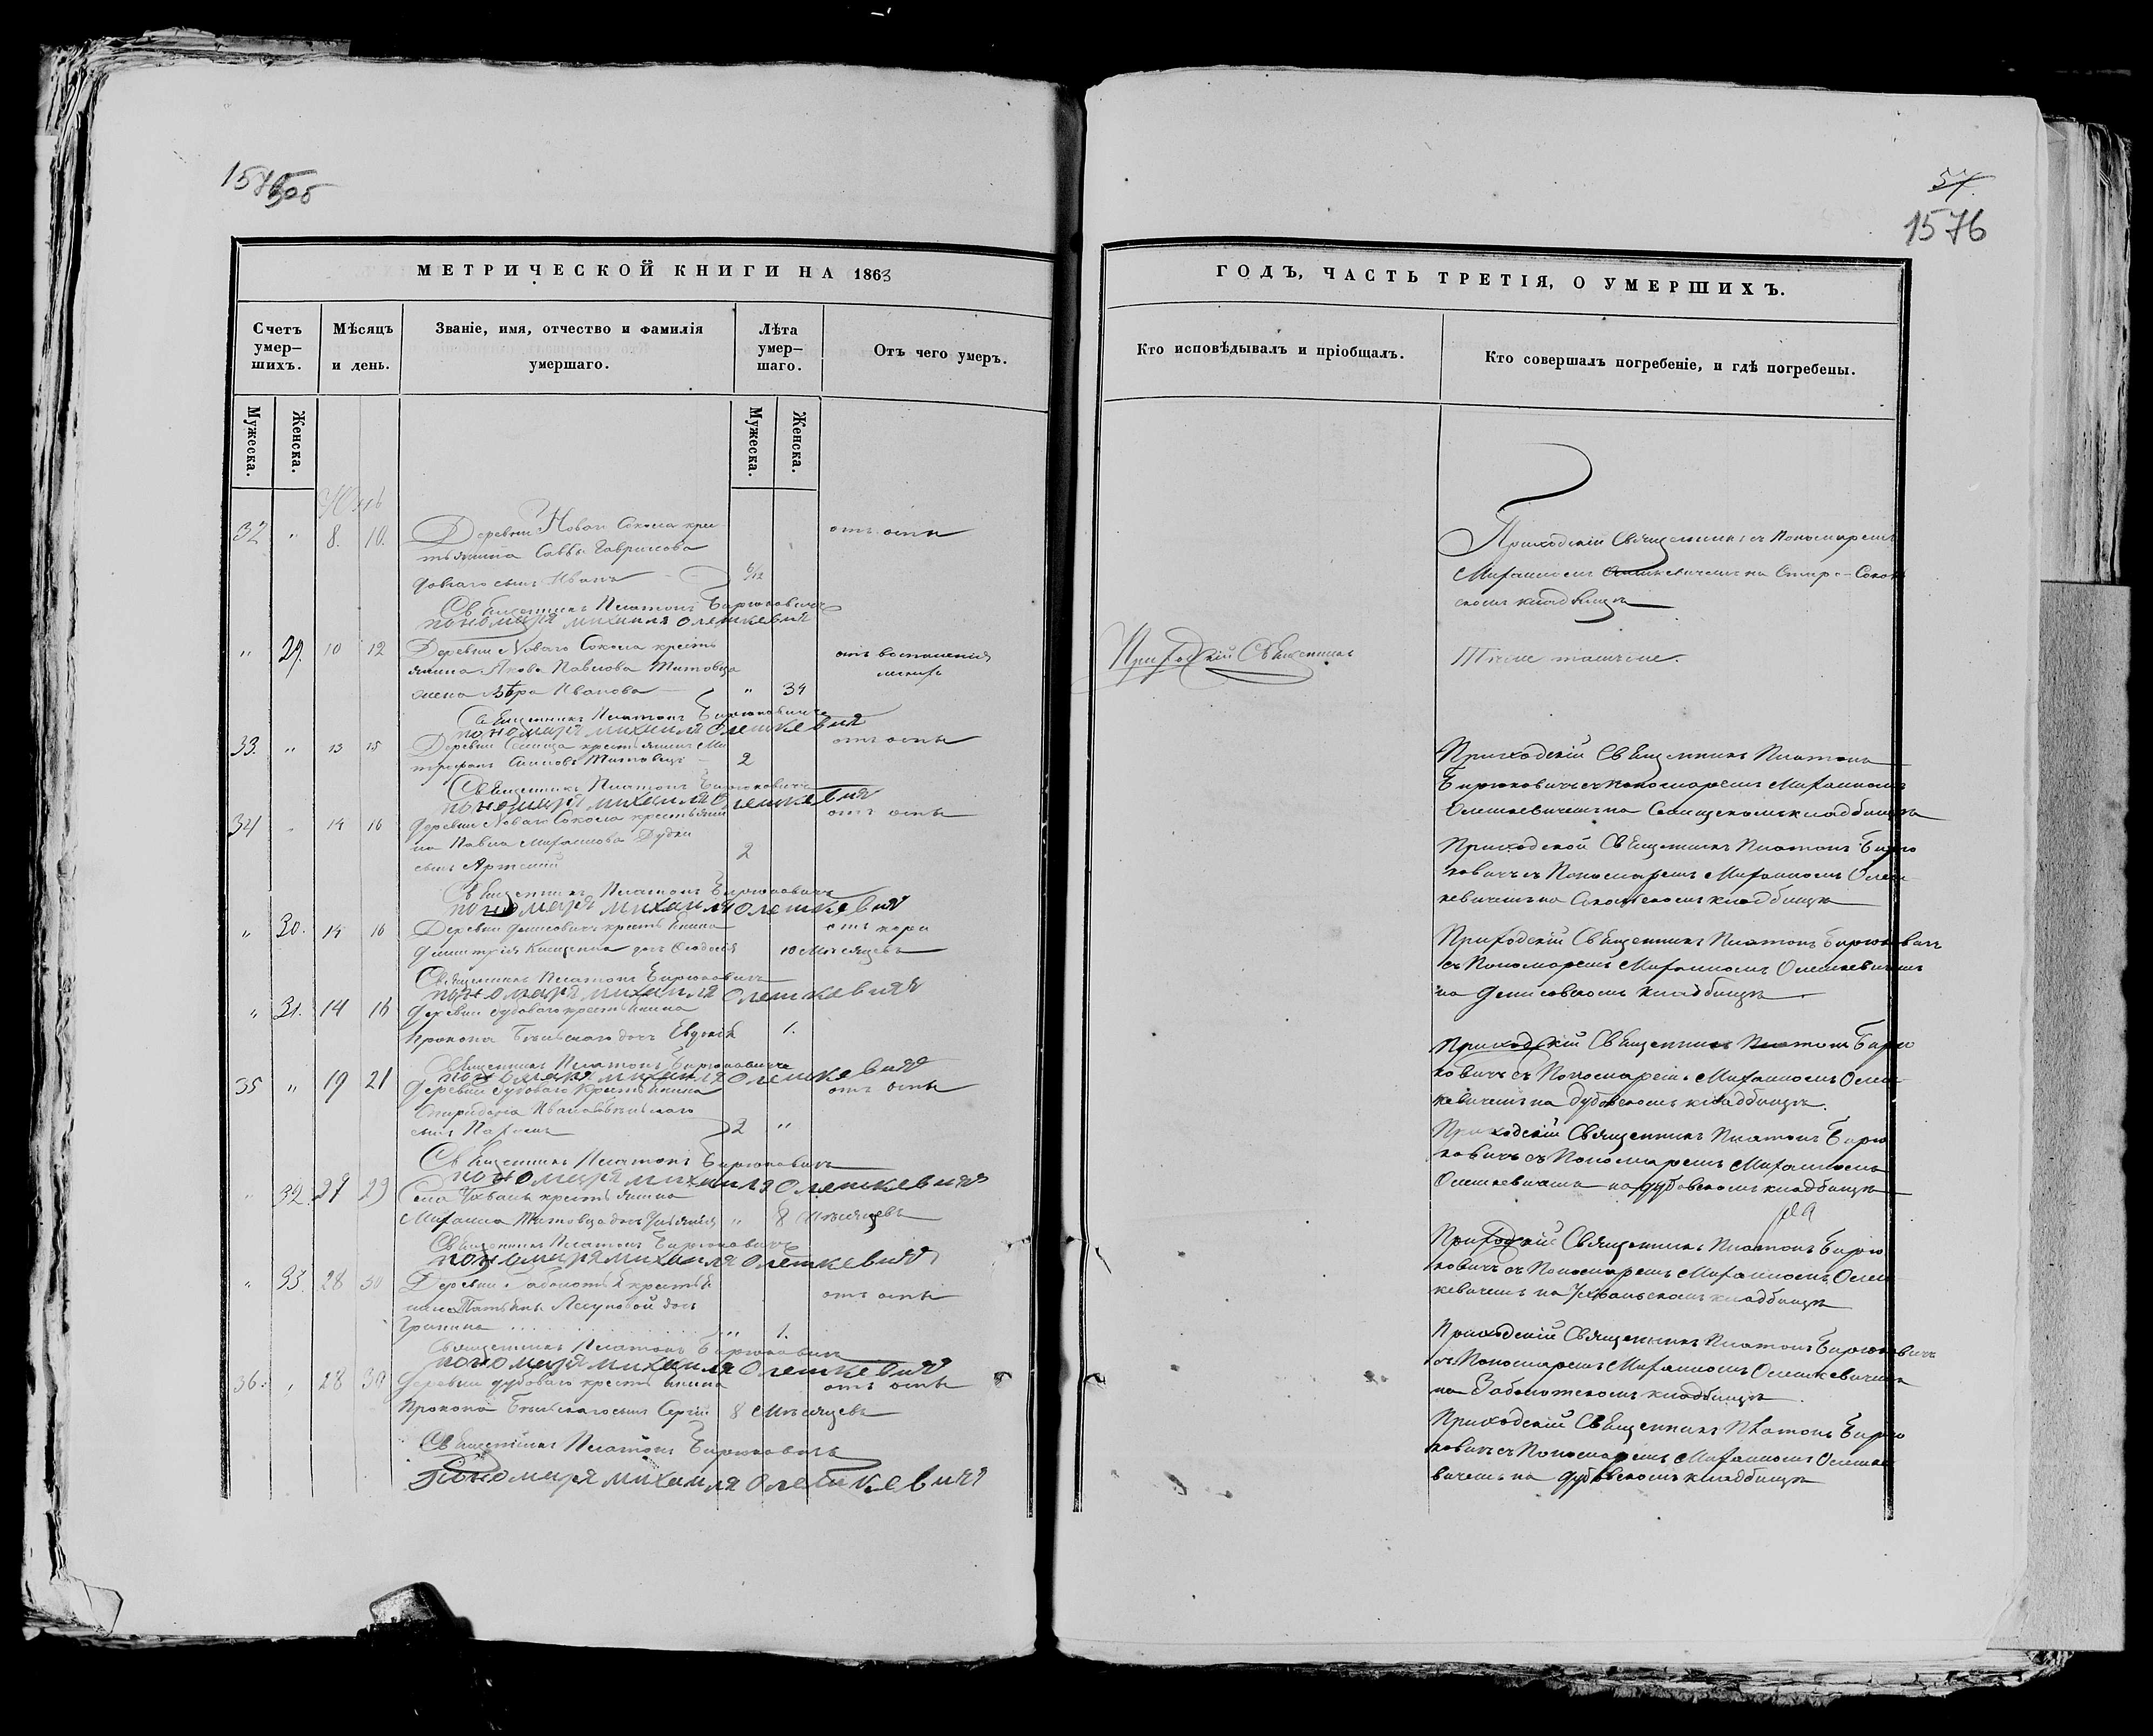 1576
МЕТРИЧЕСКОЙ КНИГИ НА 1863
Счетъ умер–шихъ.
Мѣсяцъ и день.
Званіе, имя, отчество и фамилія умершаго.
Лѣта умер–шаго.
Отъ чего умеръ.
Мужеска.
Женска.
Мужеска.
Женска.
32 " 8. 10. Деревни Новаго Сокола крес
тьянина Саввы Гаврилова
сынъ Иванъ 6/12
отъ оспы
Священникъ Платонъ Бирюковичъ
пономаря михаиля олешкевия
" 29. 10 12 Деревни Новаго Сокола кресть
янина Якова Павлова Титовца
жена Вѣра Иванова " 34
отъ воспаленія
Священникъ Платонъ Бирюковичъ
пономаря михаиля олешкевия
33. " 13 15 Деревни Селища крестьянинъ Ми
трофанъ Титовецъ 2
отъ оспы
Священникъ Платонъ Бирюковичъ
пономаря михаиля олешкевия
34 " 14 16 Деревни Новаго Сокола крестьяни
на Павла Михайлова Дудки
сынъ Артемій 2
отъ оспы
Священникъ Платонъ Бирюковичъ
пономаря михаиля олешкевия
" 30. 14 16 Деревни Денисовичъ крестьянина
Димитрія дочь Ѳеодосія 10 Мѣсяцевъ
отъ кори
Священникъ Платонъ Бирюковичъ
пономаря михаиля олешкевия
" 31. 14 16 Деревни Дубоваго крестьянина
Прокопа Бѣльскаго дочь 1.
Священникъ Платонъ Бирюковичъ
пономаря михаиля олешкевия
35 " 19 21 Деревни Дубоваго крестьянина
Спиридона Иванова Бѣльскаго
сынъ 2 "
отъ оспы
Священникъ Платонъ Бирюковичъ
пономаря михаиля олешкевия
" 32. 27 29 Села Ухвалъ крестьянина
Михаила Титовца дочь " 8 Мѣсяцевъ
Священникъ Платонъ Бирюковичъ
пономаря михаиля олешкевия
" 33. 28 30 Деревни Заболотья крестья
Татьяны дочь
" 1.
отъ оспы
Священникъ Платонъ Бирюковичъ
пономаря михаиля олешкевия
36. " 28 30 Деревни Дубоваго крестьянина
Прокопа Бѣльскаго сынъ Сергій 8 Мѣсяцевъ
отъ оспы
Священникъ Платонъ Бирюковичъ
пономаря михаиля олешкевия
57
1576
ГОДЪ, ЧАСТЬ ТРЕТІЯ, О УМЕРШИХЪ.
Кто исповѣдывалъ и пріобщалъ.
Кто совершалъ погребеніе, и гдѣ погребены.
Приходскій Священникъ съ Пономаремъ
Михаиломъ Олешкевичемъ на Старо-Сокол
скомъ кладбищѣ
Приходскій Священникъ
Тѣже тамъже.
Приходскій Священникъ Платонъ
Бирюковичъ съ пономаремъ Михаиломъ
Олешкевичемъ на Селищскомъ кладбищѣ
Приходской Священникъ Платонъ Бирю
ковичъ съ Пономаремъ Михаиломъ Олеш
кевичемъ на Сокольскомъ кладбищѣ
Приходскій Священникъ Платонъ Бирюковичъ
съ Пономаремъ Михаиломъ Олешкевичемъ
на Денисовскомъ кладбищѣ.
Приходскій Священникъ Платонъ Бирю
ковичъ съ Пономаремъ Михаиломъ Олеш
кевичемъ на Дубовскомъ кладбищѣ.
Приходскій Священникъ Платонъ Бирю
ковичъ съ Пономаремъ Михаиломъ
Олешкевичемъ на Дубовскомъ кладбищѣ
Приходскій Священникъ Платонъ Бирю
ковичъ съ Пономаремъ Михаиломъ Олеш
кевичемъ на Ухвальскомъ кладбищѣ
Приходскій Священникъ Платонъ Бирюковичъ
съ Пономаремъ Михаиломъ Олешкевичемъ
на Заболотскомъ кладбищѣ.
Приходскій Священникъ Платонъ Бирю
ковичъ съ Пономаремъ Михаиломъ Олешке
вичемъ на Дубовскомъ кладбищѣ